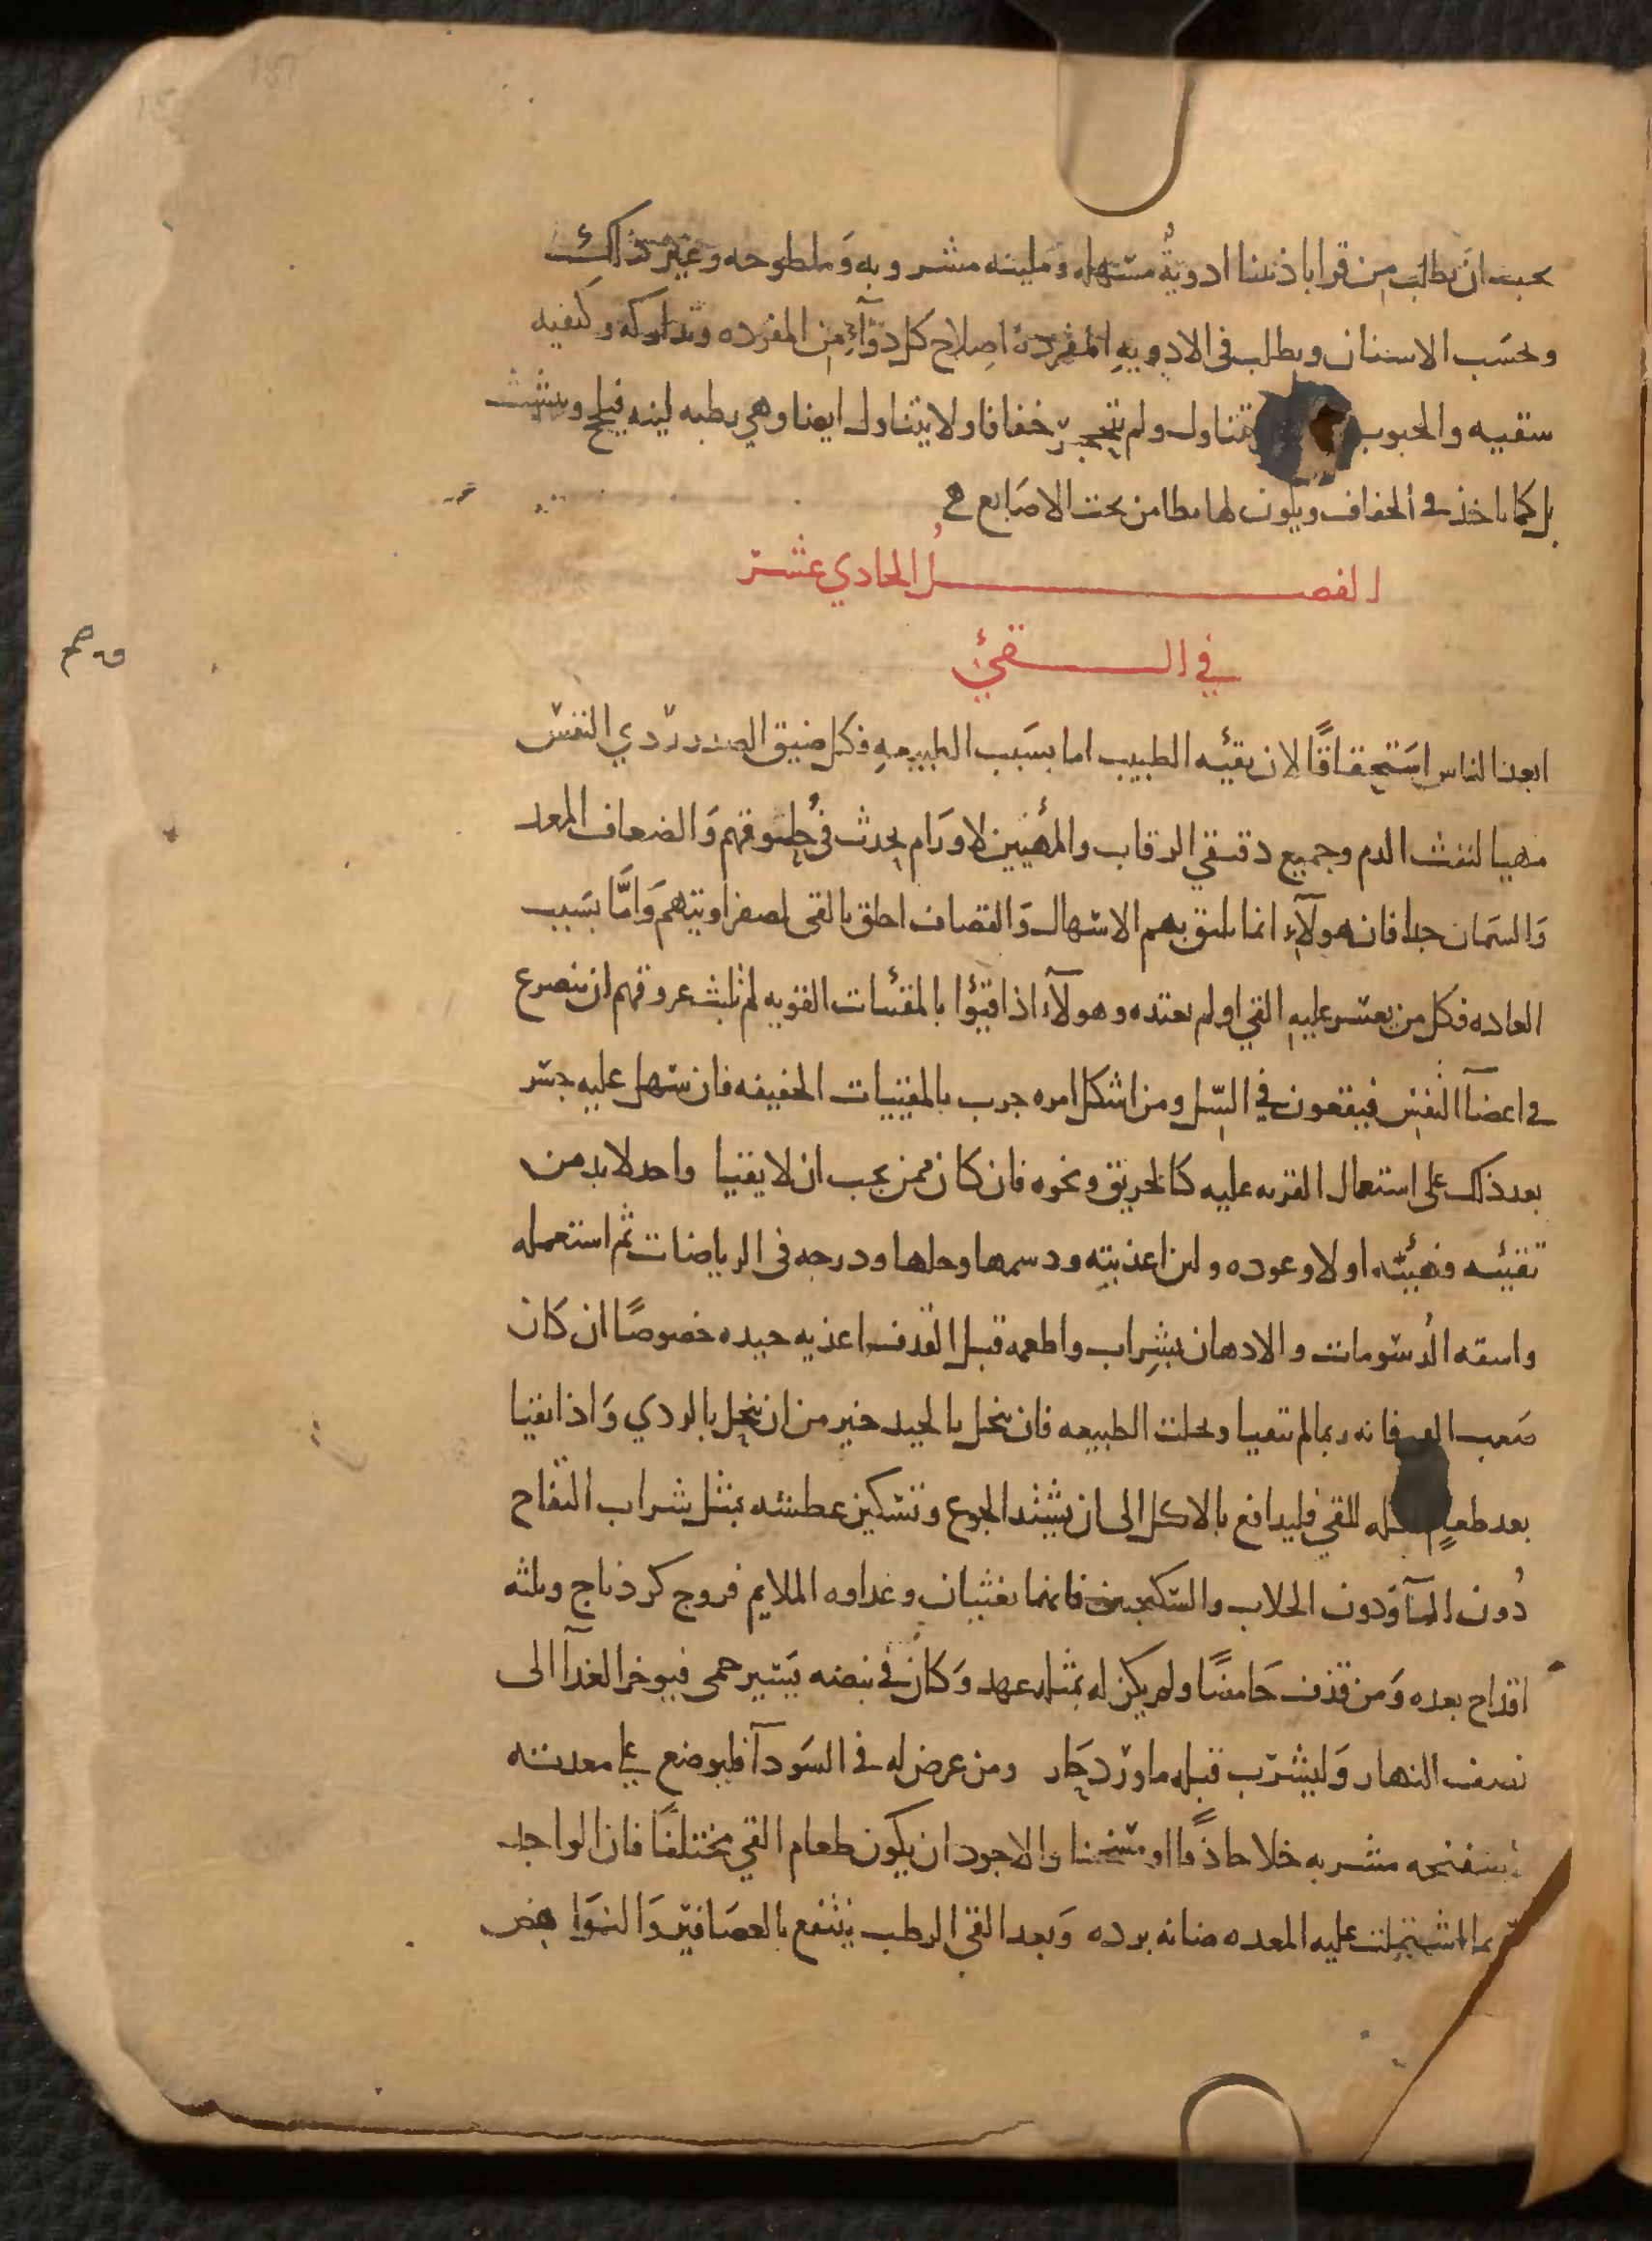 يجب ان يطلب من قراباذيننا ادوية مسهله ومليينه مشروبه وملطوخه وغير ذلك
وبحسب الاسنان ويطلب في الادويه المفردة اصلاح كل دوآء من المفرده وتداركه وكيفيه
سقيه والحبوب تتناول ولم تتحجر جفافا ولا يتناول ايضا وهي رطبه لينه فيلحج وينشث
بل كما ياخذ في الجفاف ويكون لها تطامن تحت الاصابع
الفصل الحادي عشر
في القيء
ابعد الناس استحقاقًا لان يقيئه الطبيب اما بسبب الطبيعه فكل ضيق الصدر ردي النفس
مهيا لنفث الدم وجميع دقيقي الرقاب والمهيئين لاورام يحدث في حلوقهم والضعاف المعد
والسمان جدا فان هولآء انما يليق بهم الاسهال والقصاف اخلق بالقي لصفراويتهم وامّا بسبب
العاده فكل من يعسر عليه القي او لم يعتده وهولآء اذا قيئوا بالمقيئات القويه لم تلبث عروقهم ان تنصدع
في اعضآ النفس فيقعون في السل ومن اشكل امره جرب بالمقييات الخفيفه فان سهل عليه جسر
بعد ذلك على استعمال القويه عليه كالخربق ونحوه فان كان ممن يجب ان لا يقيا واحد لا بد من
تقيئه فهيئه اولا وعوده ولين اغذيته ودسمها وحلها ودرجه في الرياضات ثم استعمله
واسقه الدسومات والادهان بشراب واطعمه قبل القذف اغذيه جيده خصوصًا ان كان
صعب القي فانه ربما لم يتقيا وبحلت الطبيعه فان ينحل بالجيد خير من ان ينحل بالردي واذا تقيا
بعد طعام اكله للقي فليدافع بالاكل الى ان يشتد الجوع وتسكين عطشه بمثل شراب التفاح
دون المآ ودون الجلاب والسكنجبين فانهما يغثيان وغداوه الملايم فروج كردناج وثلثه
اقداح بعده ومن قذف حامضًا ولم يكن له بمثله عهد وكان في نبضه يسير حمى فيوخر الغدآ الى
نصف النهار وليشرب قبله ماورد حار ومن عرض له في السودآ فليوضع على معدته
اسفنجه مشربه خلا حاذقًا او مسخنا والاجود ان يكون طعام القي مختلفًا فان الواحد
ربما اشتملت عليه المعده ضنانه برده وبعد القي الرطب ينتفع بالعصافير والنواهض